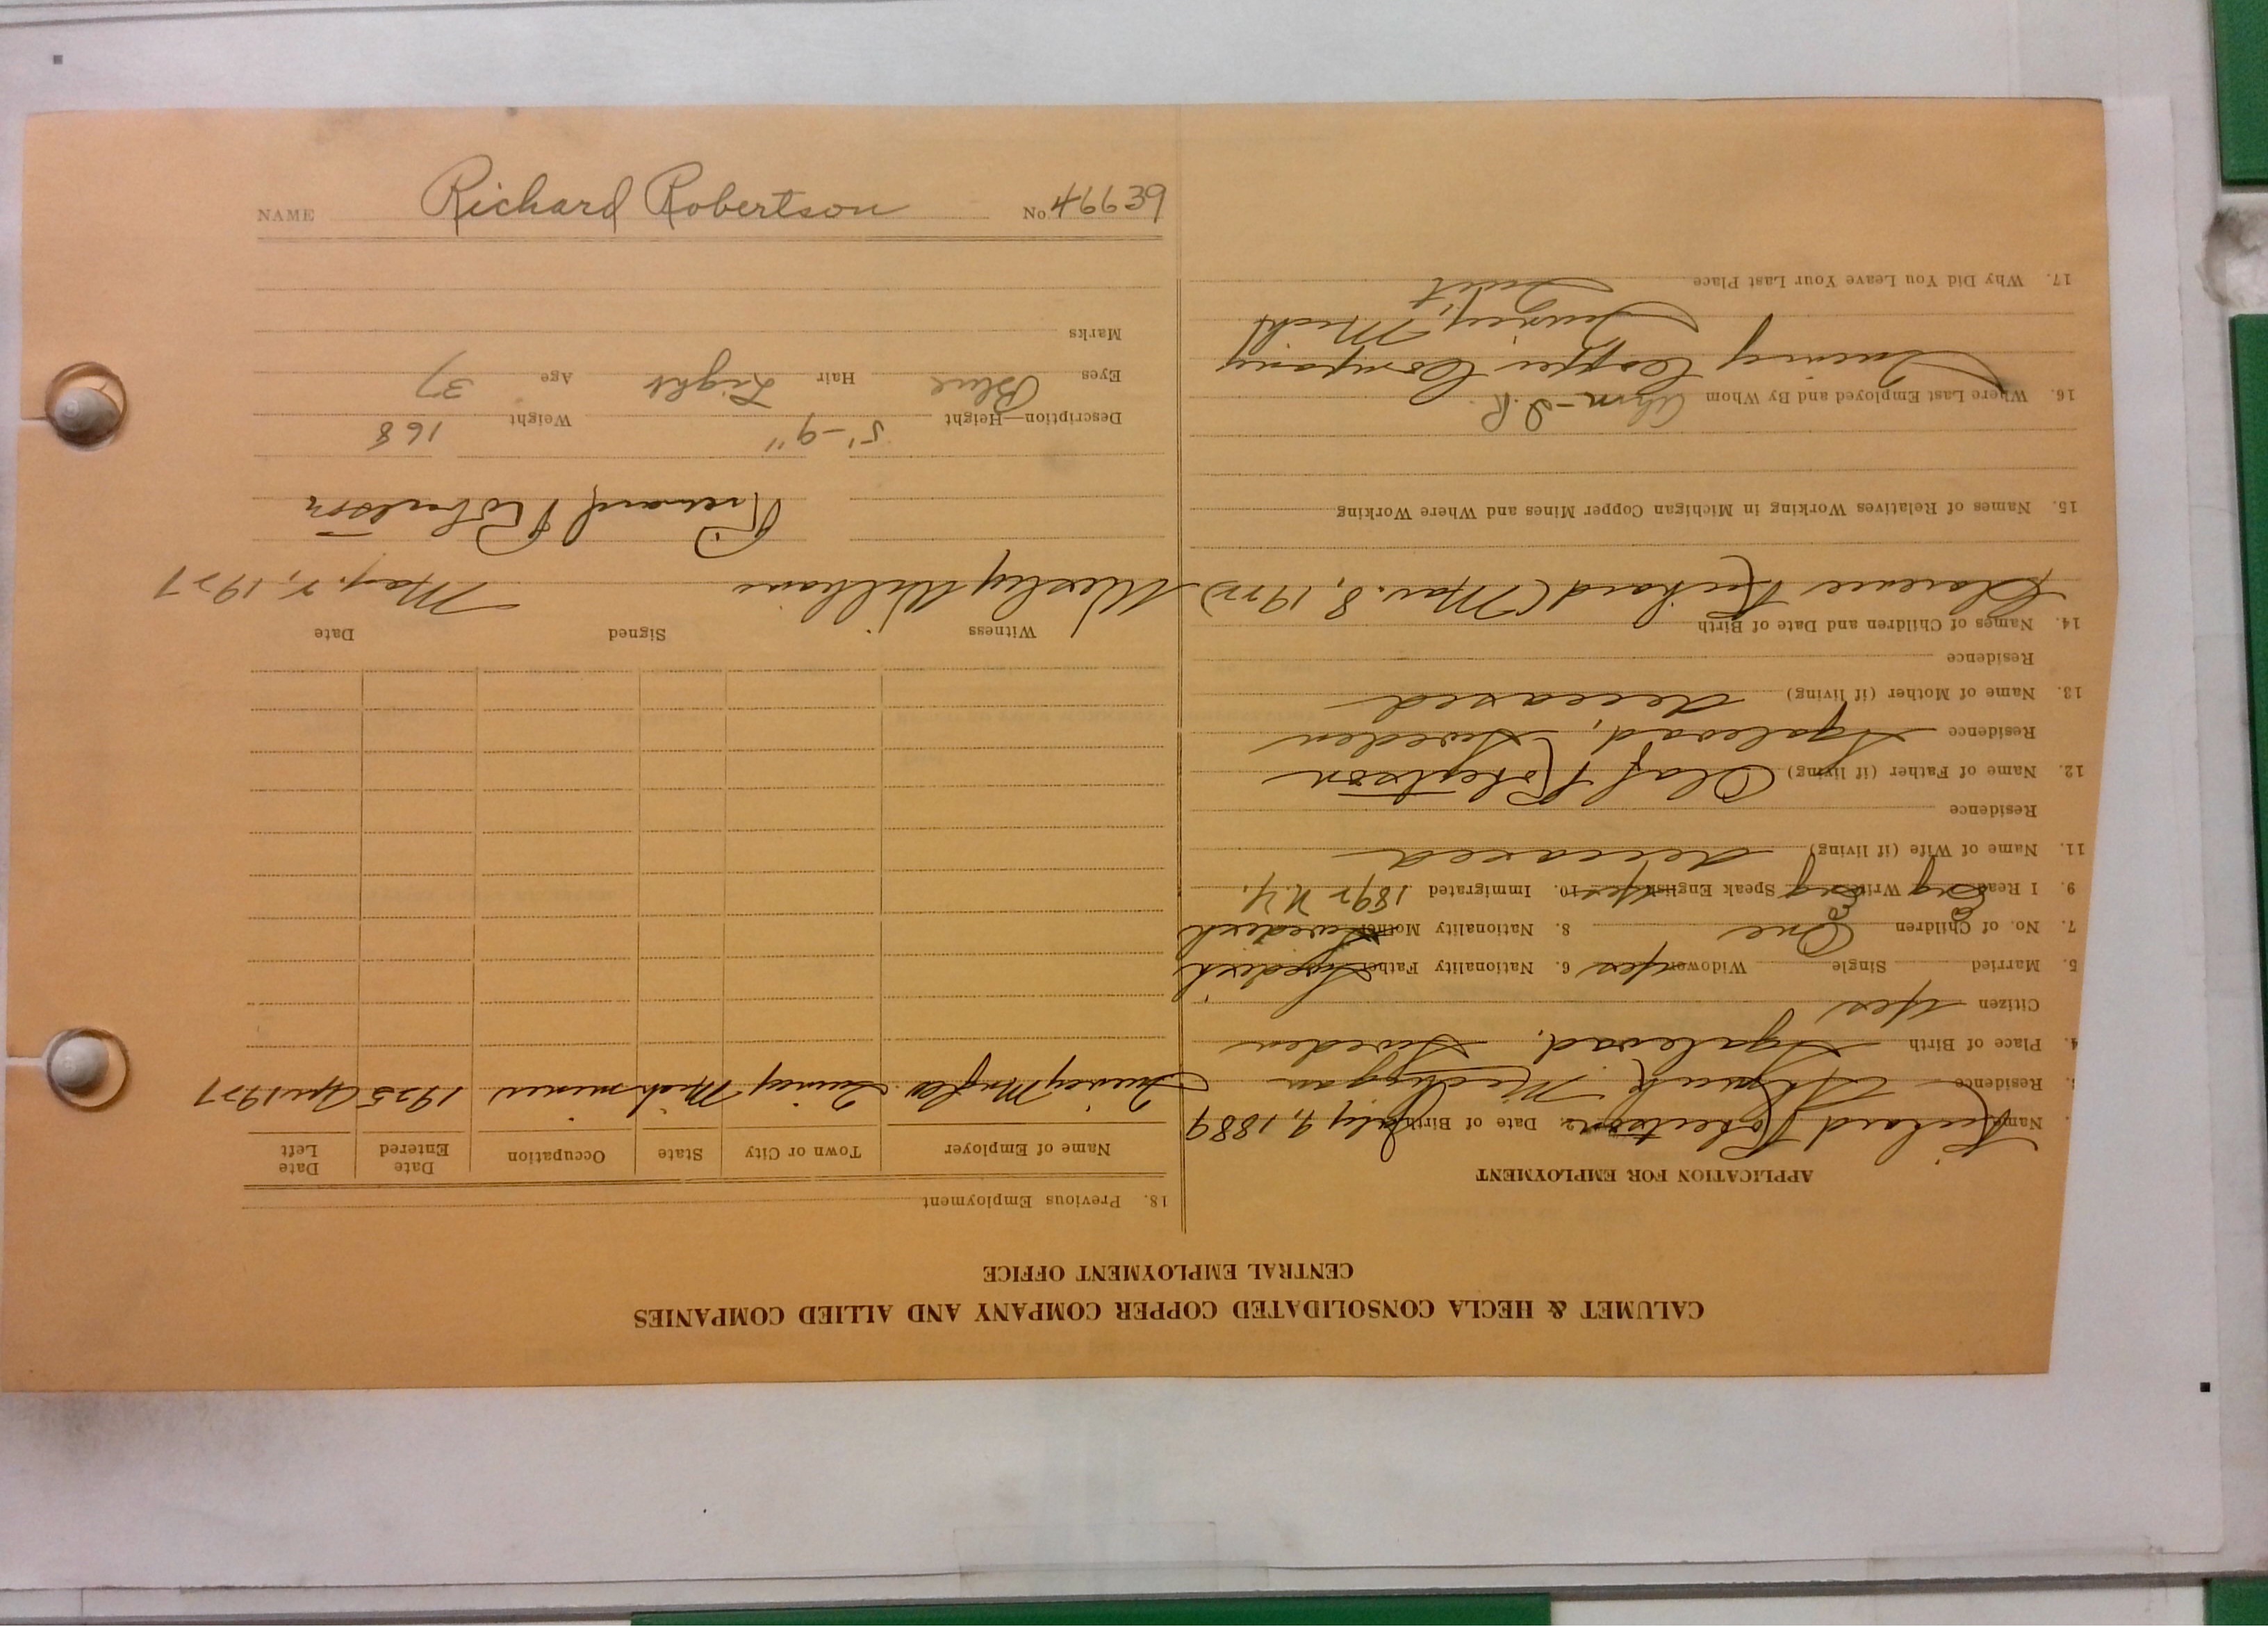 NAME Richard Robertson No. 46639
CALUMET & HECLA CONSOLIDATED COPPER COMPANY AND ALLIED COMPANIES
CENTRAL EMPLOYMENT OFFICE
APPLICATION FOR EMPLOYMENT
Name Richard Robertson 2. Date of Birth July 9, 1889
3. Residence Ahmeek Michigan
4. Place of Birth Sweden
Citizen Yes
5. Married Single Widower yes 6. Nationality Father Swedish
7. No. of Children One 8. Nationality Mother Swedish
9. I Read Eng Write Eng Speak English yes 10. Immigrated 1892 N.Y.
11. Name of Wife (if living) deceased
Residence
12. Name of Father (if living) Olaf Robertson
Residence Sweden
13. Name of Mother (if living) deceased
Residence
14. Names of Children and Date of Birth
Clarence Richard (Mar. 8, 1922)
15. Names of Relatives Working in Michigan Copper Mines and Where Working
16. Where Last Employed and By Whom
Quincy Copper Company
Quincy, Mich
17. Why Did You Leave Your Last Place Quit
18. Previous Employment
Name of Employer Town or City State Occupation Date Entered Date Left
Quincy Mng Co. Quincy Mich miner 1925 Apr 1927
Witness Signed Date
Wesley Williams May 2, 1927
Richard Robertson
Description—Height 5'-9" Weight 168
Eyes Blue Hair Light Age 37
Marks